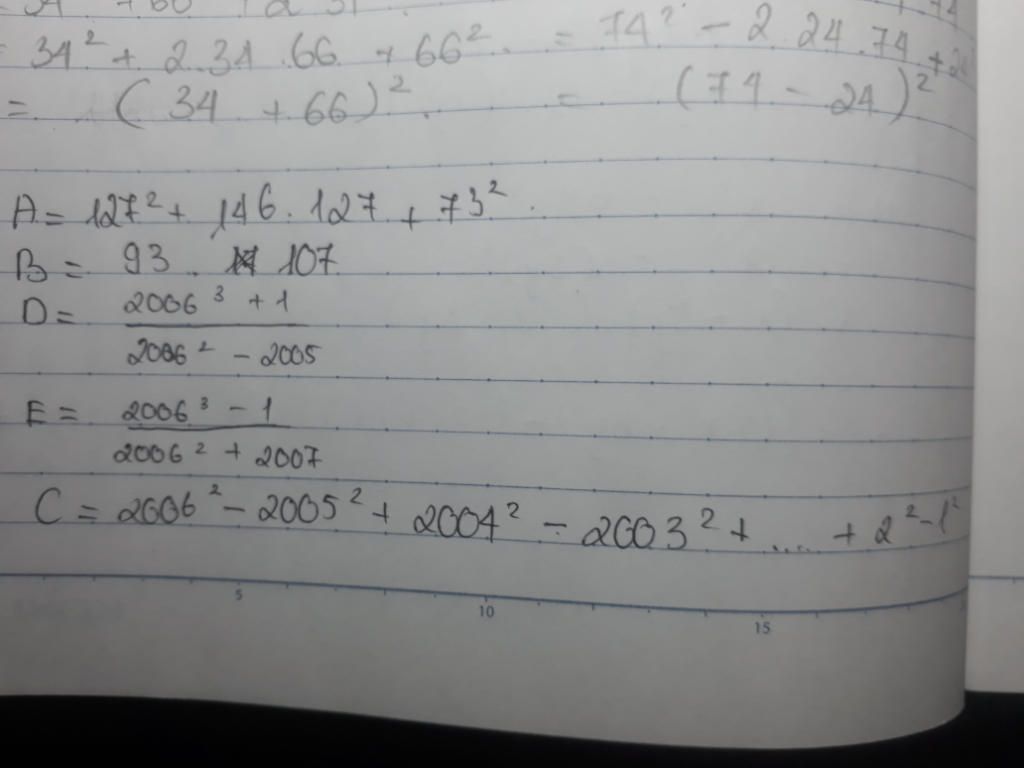 = 34² + 2.34.66 + 66². = 74² - 2.24.74 +
= (34 + 66)². = (74 - 24)²
A = 127² + 146.127 + 73².
B = 93 . 107
D = 2006³ + 1
2006² - 2005
E = 2006³ - 1
2006² + 2007
C = 2006² - 2005² + 2004² - 2003² + .... + 2² - 1²
5 10 15